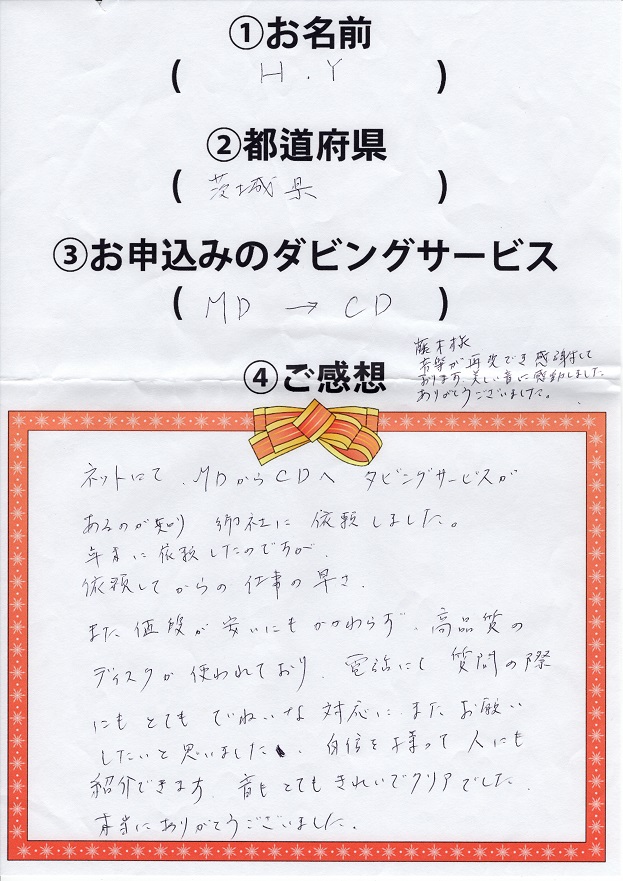 ①お名前
( H.Y )
②都道府県
( 茨城県 )
③お申込みのダビングサービス
( MD → CD )
④ご感想
藤木様
が再変でき感謝して
おります。美しい音に感動しました
ありがとうございました。
ネットにて、MDからCDへ ダビングサービスが
あるのが知り 御社に依頼しました。
年末に依頼したのですが、
依頼してからの仕事の早さ、
また価段が安いにもかかわらず、高品質の
ディスクが使われており、電話にて質問の際
にもとてもていねいな対応に またお願い
したいと思いました、自信を持って人にも
紹介できます、音もとてもきれいでクリアでした
本当にありがとうございました。